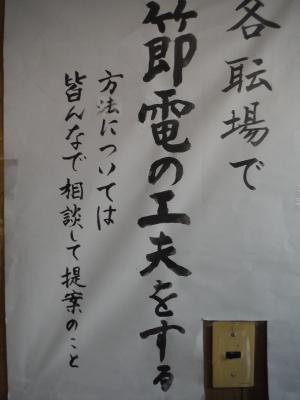 各耺場で
節電の工夫をする
方法については
皆んなで相談して提案のこと